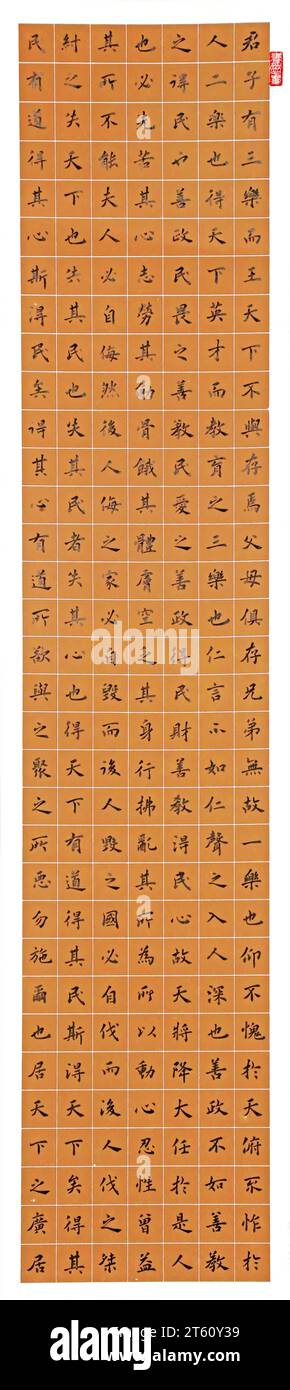 君子有三樂而王天下不與存焉父母俱存兄弟無故一樂也仰不愧於天俯不怍於
人二樂也得天下英才而教育之三樂也仁言不如仁聲之入人深也善政不如善教
之得民也善政民畏之善教民愛之善政得民財善教得民心故天將降大任於是人
也必先苦其心志勞其筋骨餓其體膚空乏其身行拂亂其所為所以動心忍性曾益
其所不能夫人必自侮然後人侮之家必自毀而後人毀之國必自伐而後人伐之桀
紂之失天下也失其民也失其民者失其心也得天下有道得其民斯得天下矣得其
民有道得其心斯得民矣得其心有道所欲與之聚之所惡勿施爾也居天下之廣居
alamy
alamy
Image ID: 2T60Y39
www.alamy.com